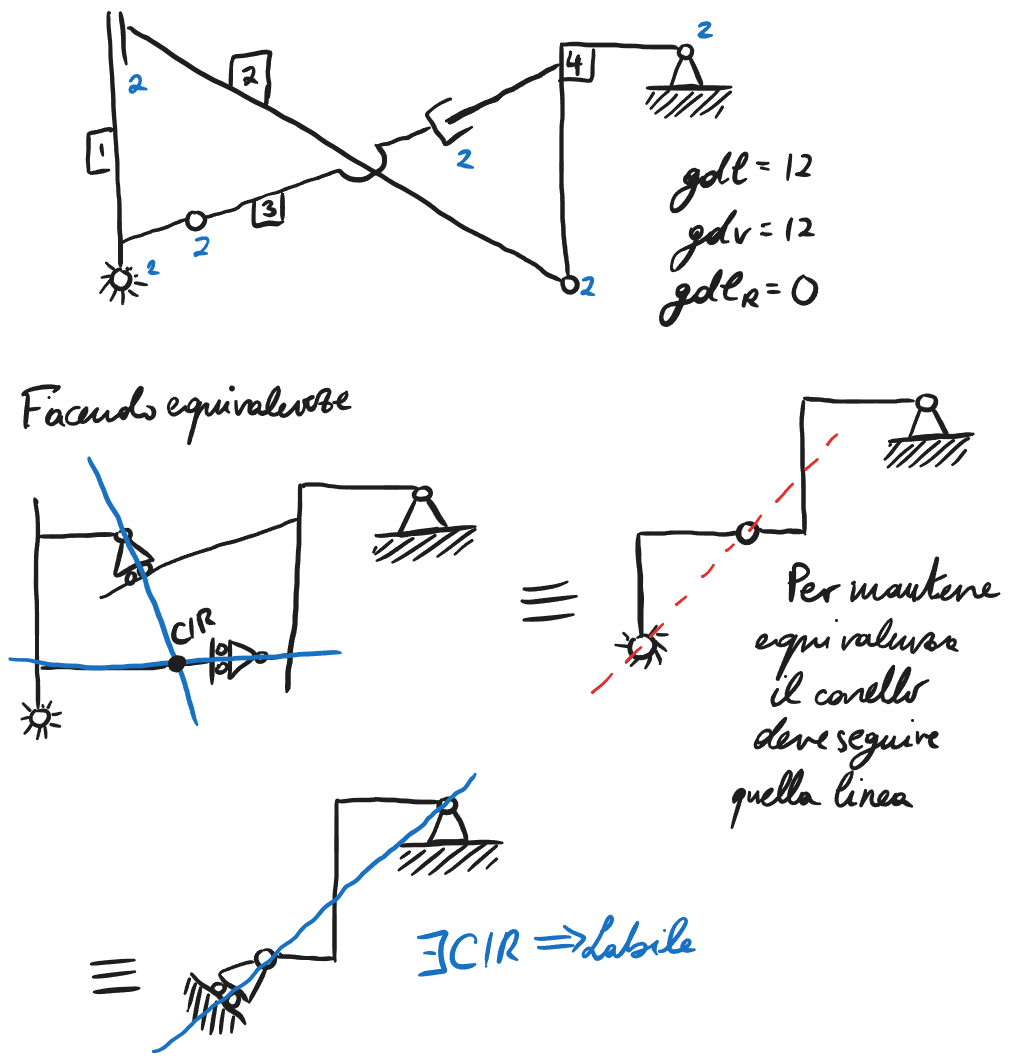 2
2
2
4
1
2
3
2
2
2
gdl = 12
gdv = 12
gdl_R = 0
Facendo equivalenze
CIR
Per mantene
equivalenza
il carrello
deve seguire
quella linea
∃CIR ⇒ Labile